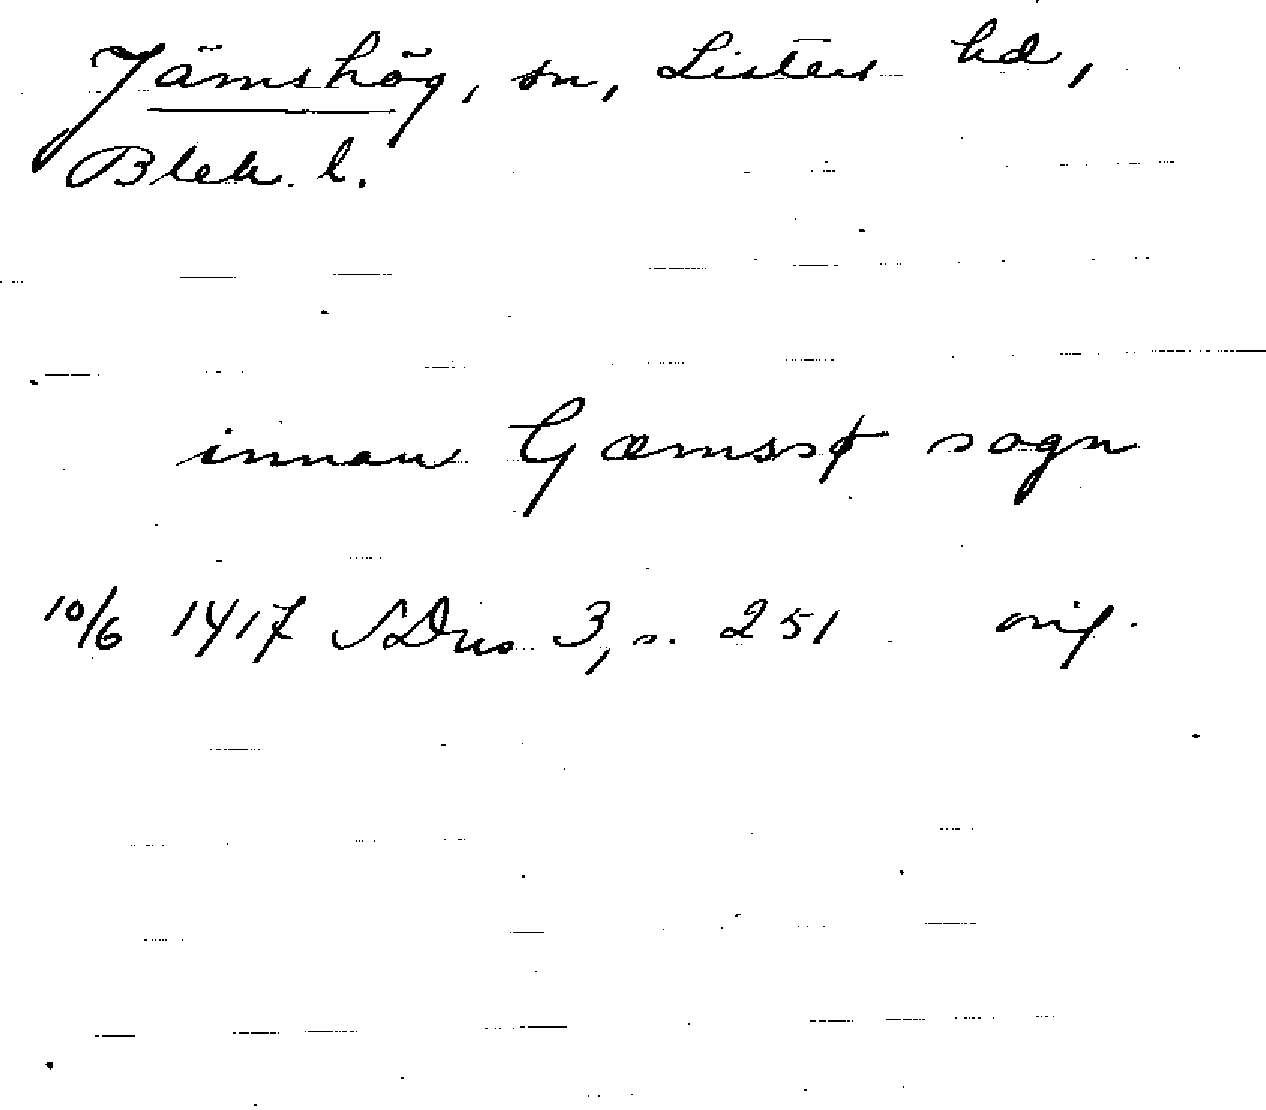 Jämshög, sn, Listers hd,
Blek. l.
innan Gæmssø sogn
10/6 1417 SDns 3, s. 251 orig.